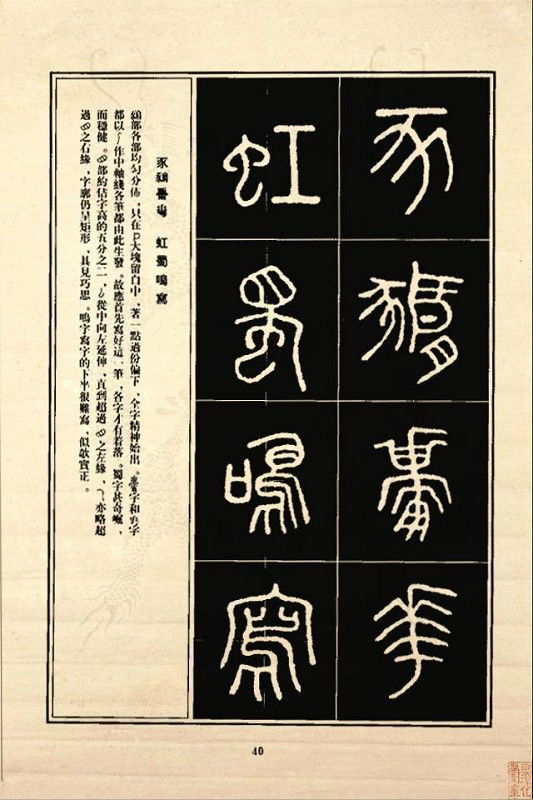 豕
虹
蜀
鳴
寫
豕 虹蜀鳴寫
部各部均勻分佈，只在大塊留白中，著一點過份偏下，全字精神始出。字和字
都以作中軸綫各筆都由此生發。故應首先寫好這一筆，各字才有着落。蜀字甚奇崛，
而穩健。部約佔字高的五分之二，從中向左延伸，直到超過之左緣，亦略超
過之右緣，字廓仍呈矩形，具見巧思。鳴字寫字的下半很難寫，似欹實正。
40